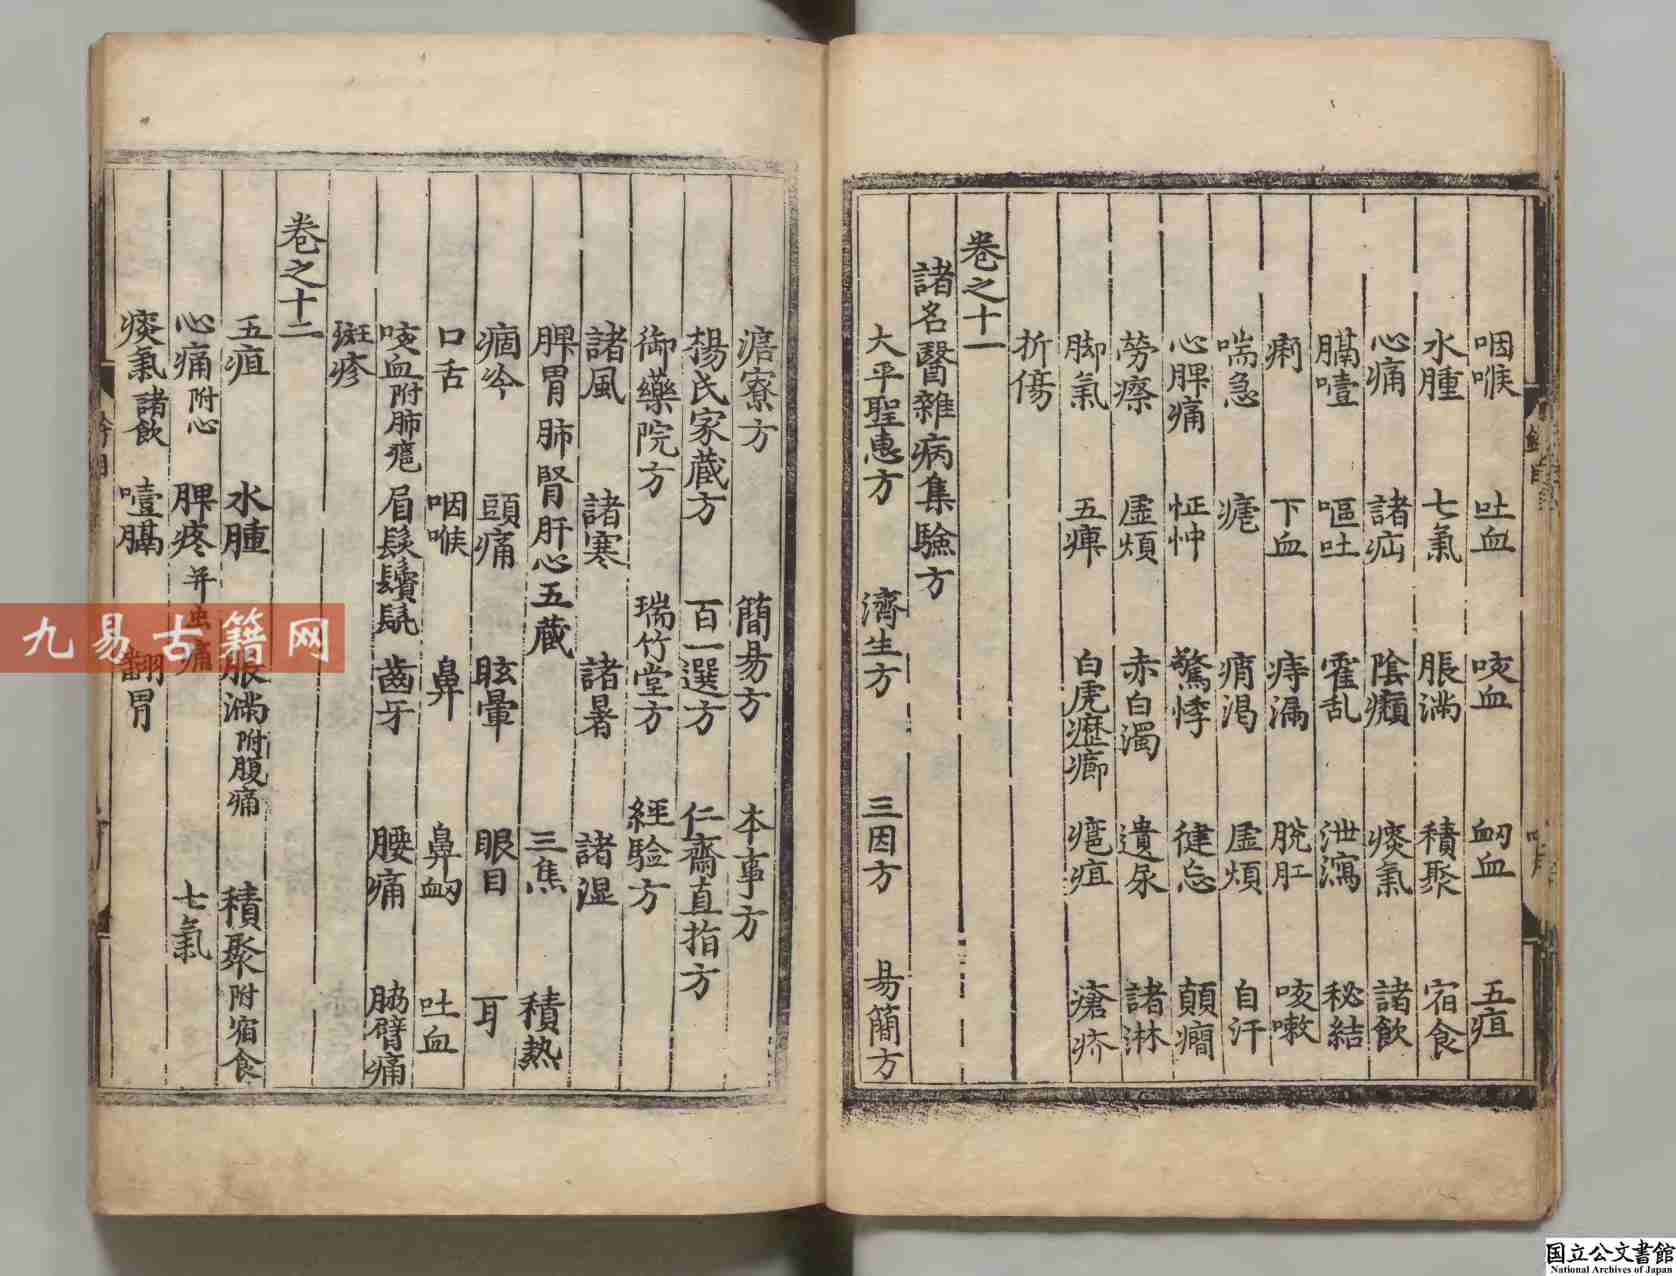 咽喉 吐血 咳血 衂血 五疸
水腫 七氣 脹滿 積聚 宿食
心痛 諸疝 陰癩 痰氣 諸飲
膈噎 嘔吐 霍乱 泄瀉 秘結
痢 下血 痔漏 脫肛 咳嗽
喘急 瘧 痟渴 虛煩 自汗
心脾痛 怔忡 驚悸 健忘 顛癇
勞瘵 虛煩 赤白濁 遺尿 諸淋
脚氣 五痺 白虎癧癤 瘡疽 瘡疥
折傷
卷之十一
諸名醫雜病集驗方
大平聖惠方 濟生方 三因方 易簡方
澹寮方 簡易方 本事方
楊氏家藏方 百一選方 仁齋直指方
御藥院方 瑞竹堂方 経驗方
諸風 諸寒 諸暑 諸湿
脾胃肺腎肝心五藏 三焦 積熱
痼冷 頭痛 眩暈 眼目 耳
口舌 咽喉 鼻 鼻衂 吐血
咳血附肺瘧 眉髮鬚髭 齒牙 腰痛 脇臂痛
斑疹
卷之十二
五疸 水腫 脹滿附腹痛 積聚附宿食
心痛附心 脾疼并虫痛 七氣
痰氣諸飲 噎膈 翻胃
九易古籍网
国立公文書館
National Archives of Japan